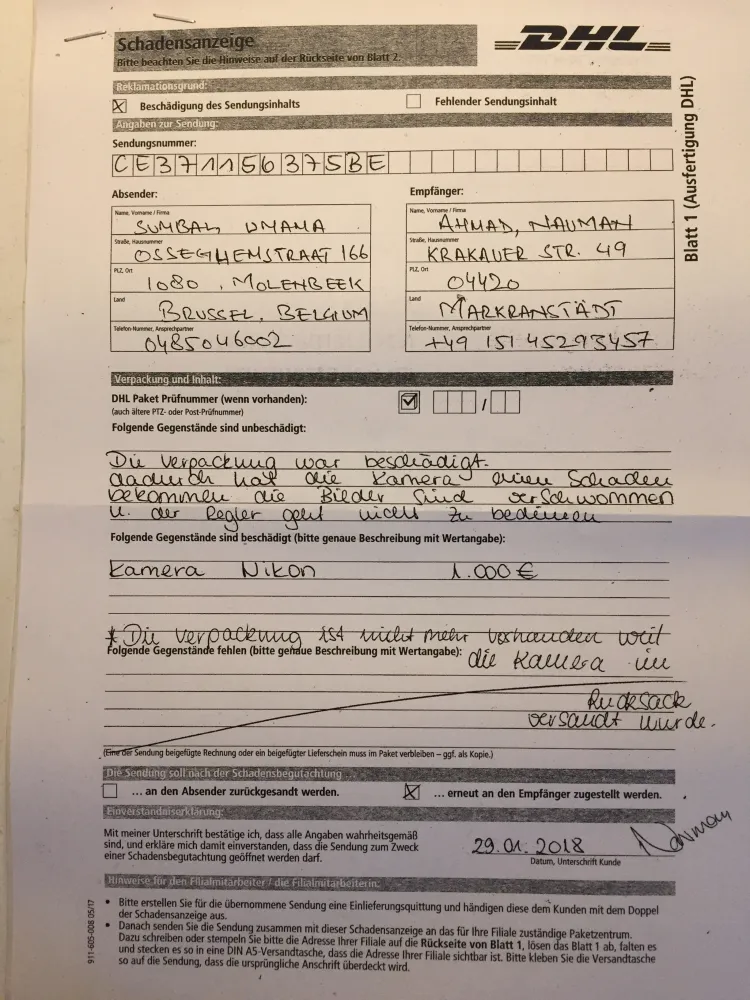 Schadensanzeige
Bitte beachten Sie die Hinweise auf der Rückseite von Blatt 2.
DHL
Reklamationsgrund:
Beschädigung des Sendungsinhalts
Fehlender Sendungsinhalt
Angaben zur Sendung:
Sendungsnummer:
CE371156375BE
Absender:
Name, Vorname / Firma
SUMBAL UMAMA
Straße, Hausnummer
OSSEGHEMSTRAAT 166
PLZ, Ort
1080 , MOLENBEEK
Land
BRUSSEL, BELGIUM
Telefon-Nummer, Ansprechpartner
0485046002
Empfänger:
Name, Vorname / Firma
AHMAD, NAUMAN
Straße, Hausnummer
KRAKAUER STR. 49
PLZ, Ort
04420
Land
MARKRANSTÄDT
Telefon-Nummer, Ansprechpartner
+49 151 45293457
Blatt 1 (Ausfertigung DHL)
Verpackung und Inhalt:
DHL Paket Prüfnummer (wenn vorhanden):
(auch ältere PTZ- oder Post-Prüfnummer)
/
Folgende Gegenstände sind unbeschädigt:
Die Verpackung war beschädigt.
dadurch hat die Kamera einen Schaden
bekommen die Bilder sind verschwommen
u. der Regler geht nicht zu bedienen
Folgende Gegenstände sind beschädigt (bitte genaue Beschreibung mit Wertangabe):
Kamera Nikon 1.000 €
* Die Verpackung ist nicht mehr vorhanden weil
Folgende Gegenstände fehlen (bitte genaue Beschreibung mit Wertangabe):
die Kamera im
Rucksack
versandt wurde.
(Eine der Sendung beigefügte Rechnung oder ein beigefügter Lieferschein muss im Paket verbleiben – ggf. als Kopie.)
Die Sendung soll nach der Schadensbegutachtung ...
... an den Absender zurückgesandt werden.
... erneut an den Empfänger zugestellt werden.
Einverständniserklärung:
Mit meiner Unterschrift bestätige ich, dass alle Angaben wahrheitsgemäß
sind, und erkläre mich damit einverstanden, dass die Sendung zum Zweck
einer Schadensbegutachtung geöffnet werden darf.
29.01.2018 Nauman
Datum, Unterschrift Kunde
Hinweise für den Filialmitarbeiter / die Filialmitarbeiterin:
• Bitte erstellen Sie für die übernommene Sendung eine Einlieferungsquittung und händigen diese dem Kunden mit dem Doppel
der Schadensanzeige aus.
• Danach senden Sie die Sendung zusammen mit dieser Schadensanzeige an das für Ihre Filiale zuständige Paketzentrum.
Dazu schreiben oder stempeln Sie bitte die Adresse Ihrer Filiale auf die Rückseite von Blatt 1, lösen das Blatt 1 ab, falten es
und stecken es so in eine DIN A5-Versandtasche, dass die Adresse Ihrer Filiale sichtbar ist. Bitte kleben Sie die Versandtasche
so auf die Sendung, dass die ursprüngliche Anschrift überdeckt wird.
911-605-008 05/17